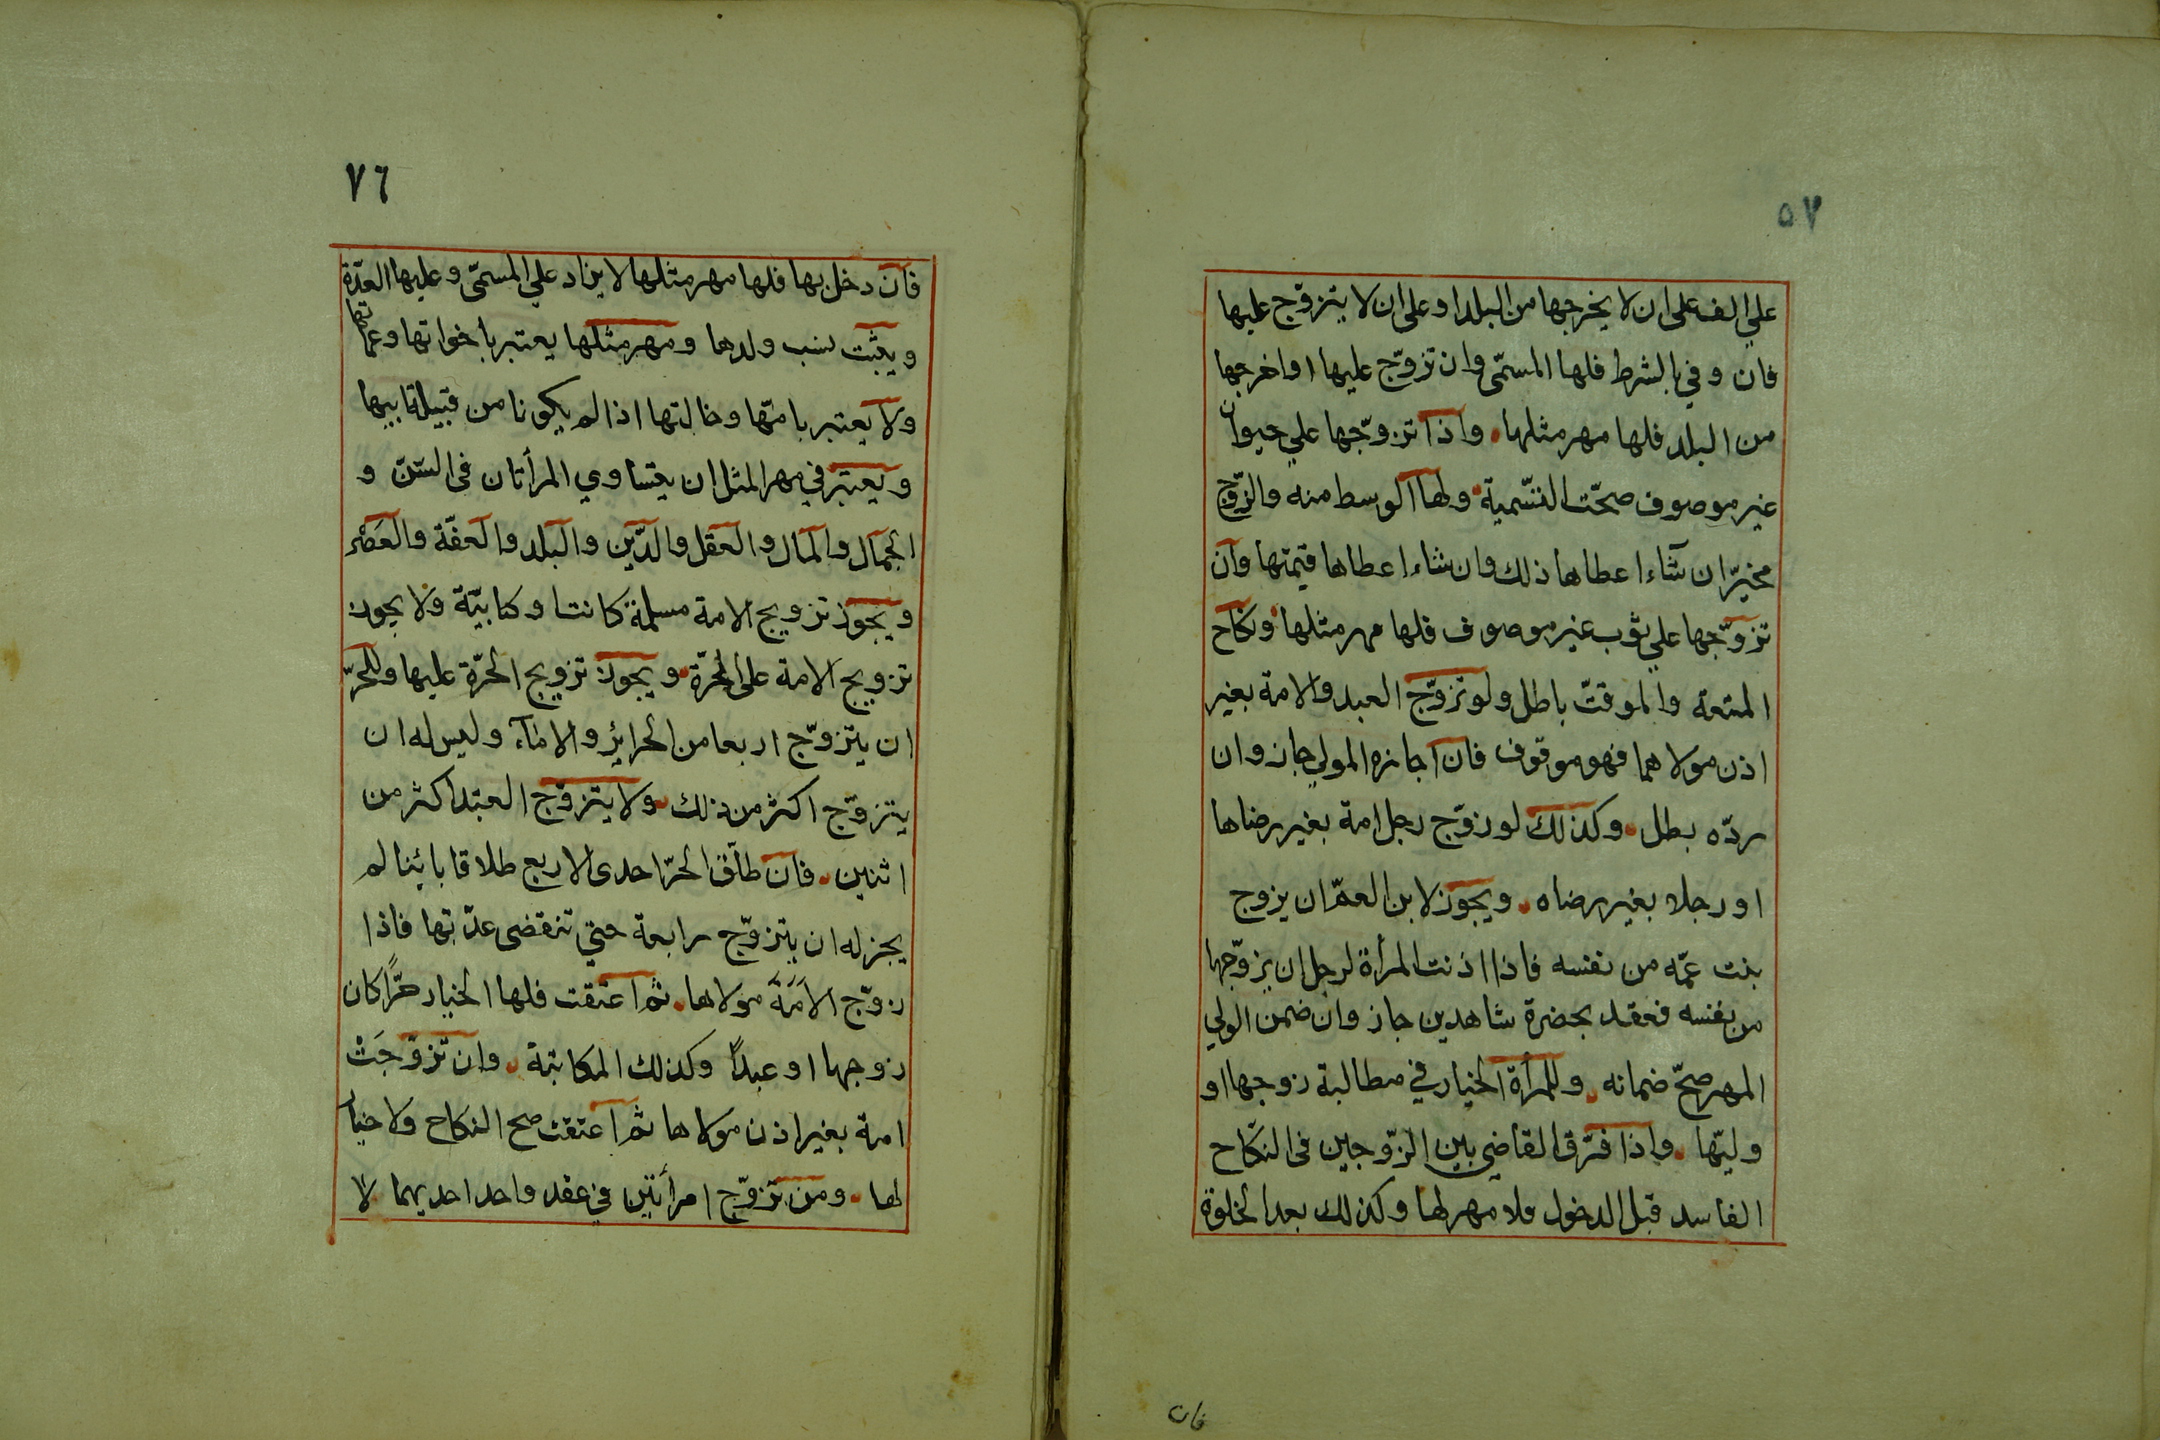 ٥٧
علي الف على ان لا يخرجها من البلد او على ان لا يتزوّج عليها
فان وفي بالشرط فلها المسمّى وان تزوّج عليها او اخرجها
من البلد فلها مهر مثلها واذا تزوّجها علي حيوان
غير موصوف صحّت التسّمية ولها الوسط منه والزّوج
مخيرّ ان شاء اعطاها ذلك وان شاء اعطاها قيمتها وان
تزوّجها علي ثوب غير موصوف فلها مهر مثلها ونكاح
المتعة والموقتّ باطل ولو تزوّج العبد والامة بغير
اذن مولاهما فهو موقوف فان اجازه المولي جاز وان
ردّه بطل وكذلك لو زوّج رجل امة بغير رضاها
او رجلا بغير رضاه ويجوز لابن العمّ ان يزوج
بنت عمّه من نفسه فاذا اذنت المرأة لرجل ان يزوّجها
من نفسه فعقد بحضرة شاهدين جاز وان ضمن الولي
المهر صحّ ضمانه وللمرأة الخيار في مطالبة زوجها او
وليّها واذا فرّق القاضي بين الزّوجين فى النّكاح
الفاسد قبل الدخول فلا مهر لها وكذلك بعد الخلوة
فان
٧٦
فان دخل بها فلها مهر مثلها لا يزاد علي المسمّى وعليها العدّة
ويثبت نسب ولدها ومهر مثلها يعتبر باخواتها وعماتها
ولا يعتبر بامّها وخالتها اذا لم يكونا من قبيلة ابيها
ويعتبر في مهر المثل ان يتساوي المرأتان فى السّنّ و
الجمال والمال والعقل والدّين والبلد والعفّة والعَصْر
ويجوز تزويج الامة مسلمة كانت او كتابيّة ولا يجوز
تزويج الامة على الحرّة ويجوز تزويج الحرّة عليها وللحرّ
ان يتزوّج اربعا من الحرائر والامآء وليس له ان
يتزوّج اكثر من ذلك ولا يتزوّج العبد اكثر من
اثنين فان طلّق الحرّ احدى الاربع طلاقا بائنا لم
يجز له ان يتزوّج رابعة حتي تنقضى عدّتها فاذا
زوّج الاَمَةَ مولاها ثم اعتقت فلها الخيار حرًّا كان
زوجها او عبداً وكذلك المكاتبة وان تزوّجَتْ
امة بغير اذن مولاها ثم اعتقت صح النكاح ولا خيار
لها ومن تزوّج امرأتين في عقد واحد احديهما لا